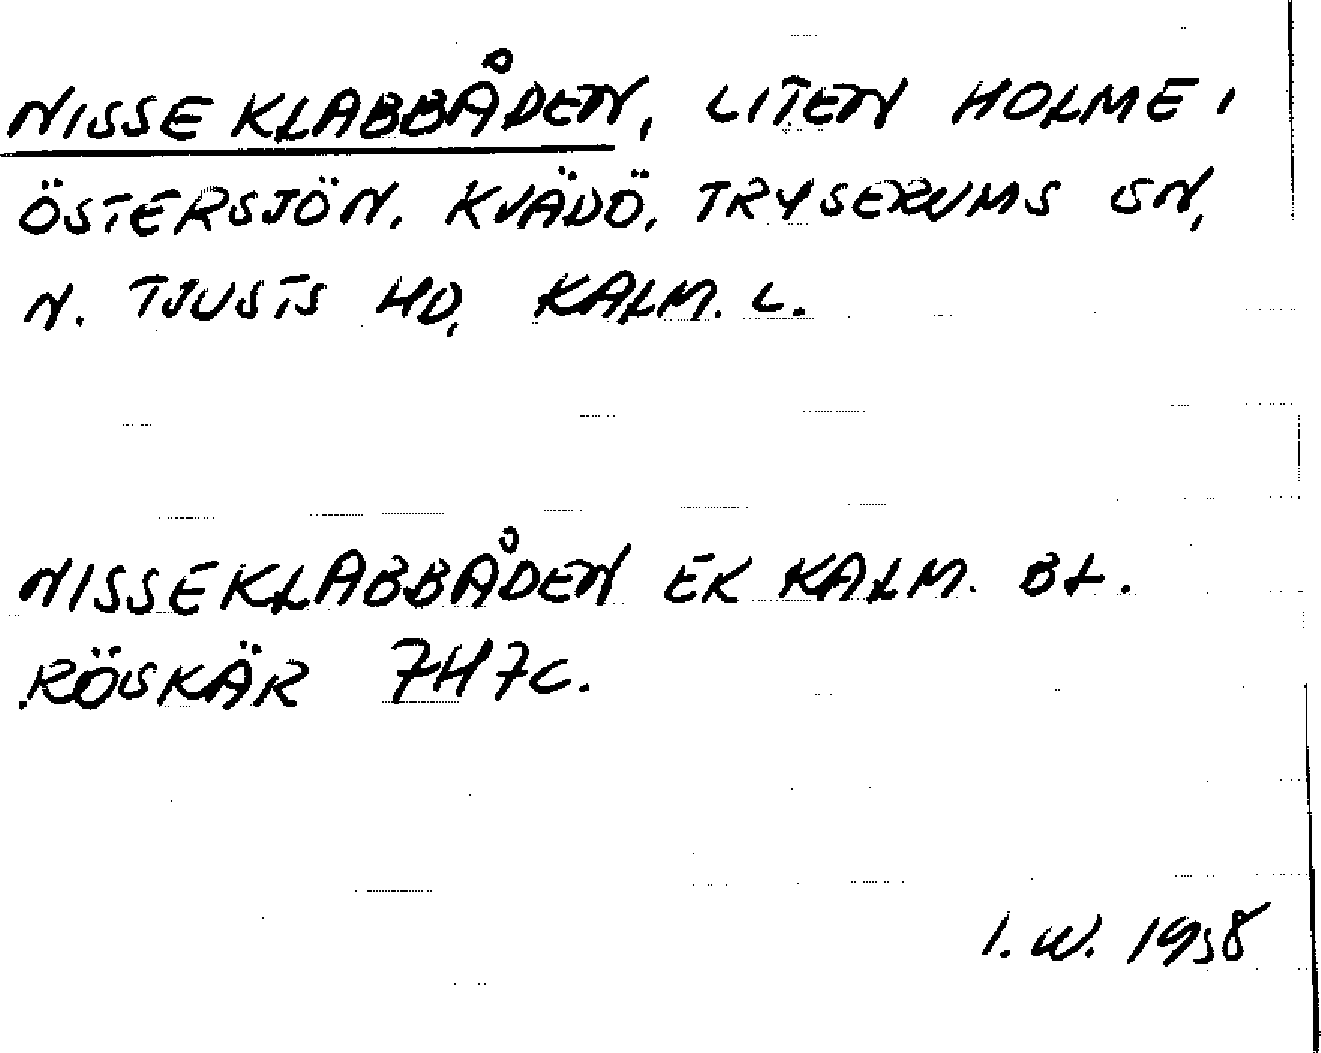 NISSEKLABBÅDEN, LITEN HOLME I
ÖSTERSJÖN. KVÄDÖ. TRYSERUMS SN,
N. TJUSTS HD, KALM. L.
NISSEKLABBÅDEN EK KALM. BL.
RÖSKÄR 7H7C.
I. W. 1958